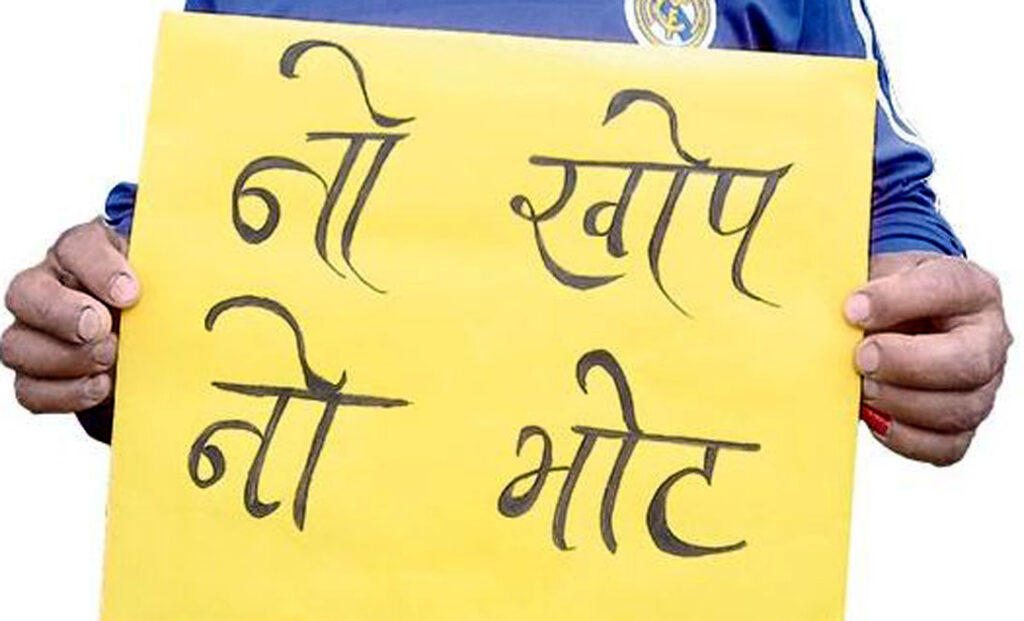 नो खोप
नो भोट